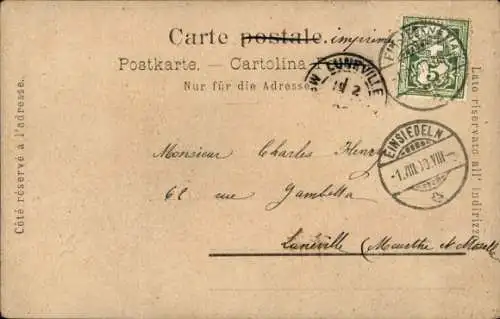 Carte postale. imprimé
Postkarte. — Cartolina
Nur für die Adresse
Côté réservé à l'adresse.
Lato riservato all' indirizzo
LUNÉVILLE
EINSIEDELN
5
Monsieur Charles Henry
62 rue Gambetta
Lunéville (Meurthe et Moselle